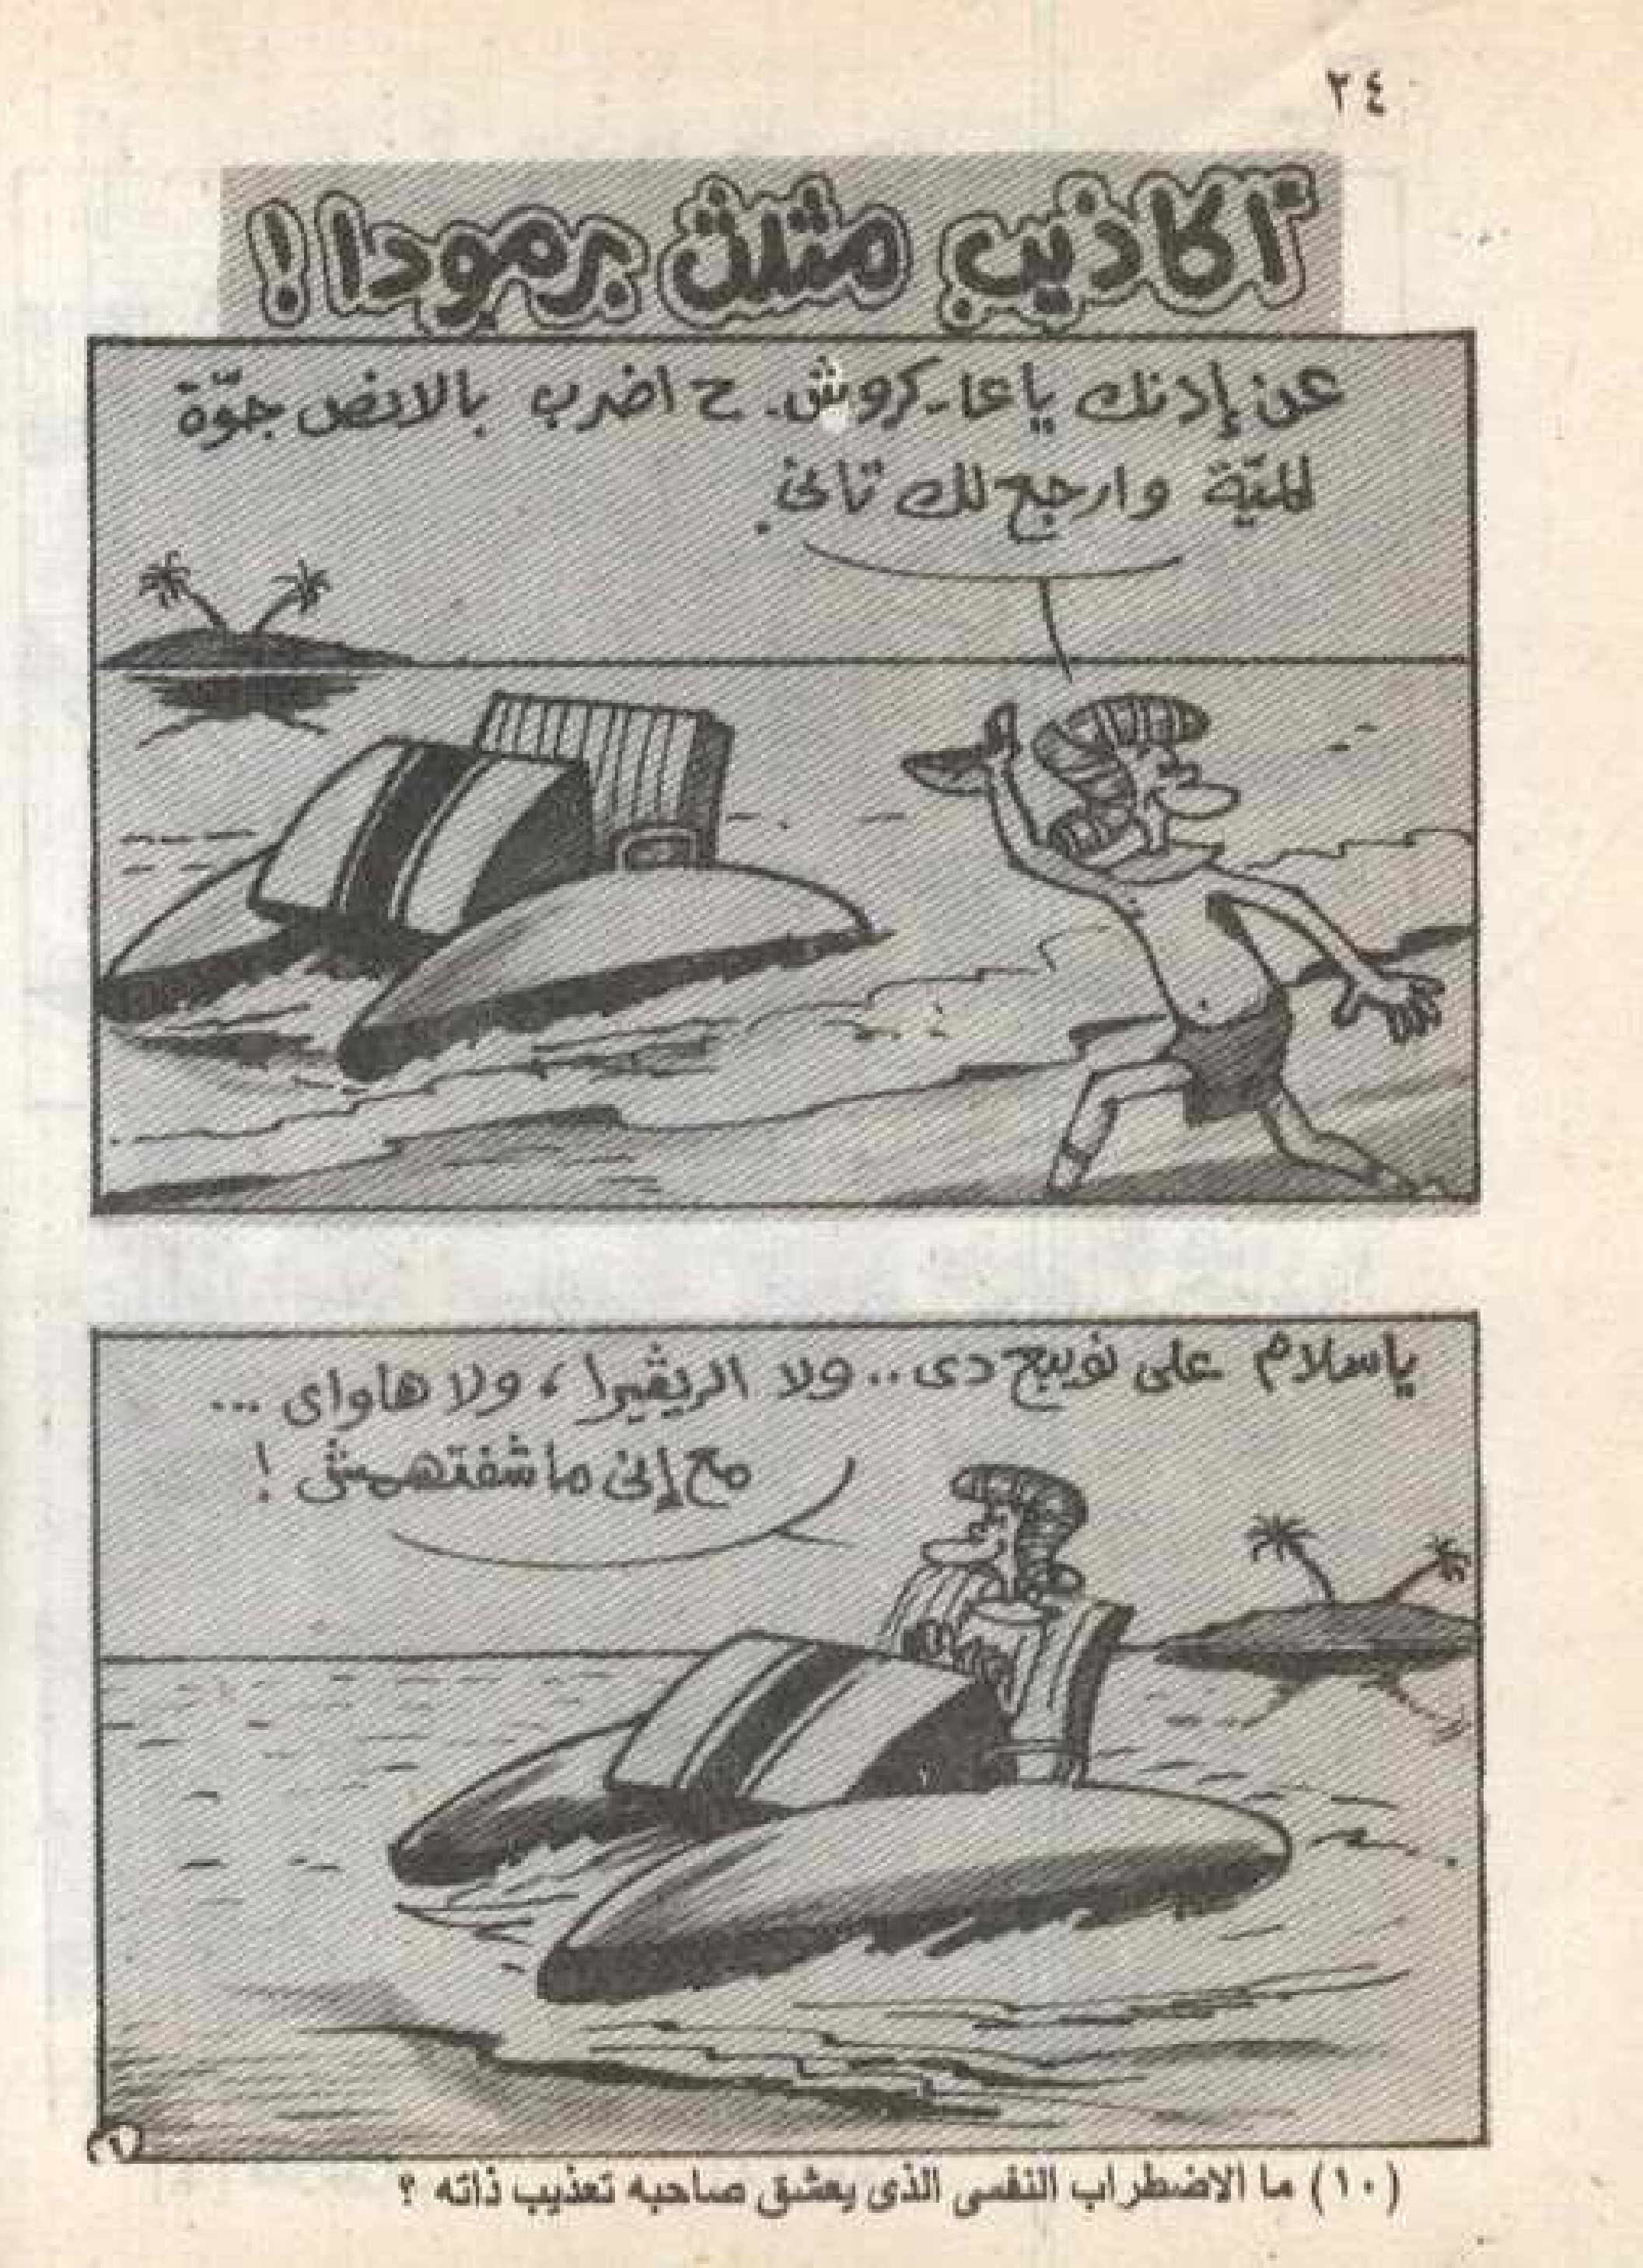 ٢٤
أكاذيب مثلث برمودا!
عن إذنك يا عا.كروش. ح اضرب بالانص جوّة
الميّة وارجع لك تانى.
ياسلام على نويبع دى.. ولا الريڤيرا، ولا هاواى ...
مع إنى ماشفتهمش !
(١٠) ما الاضطراب النفسى الذى يعشق صاحبه تعذيب ذاته ؟